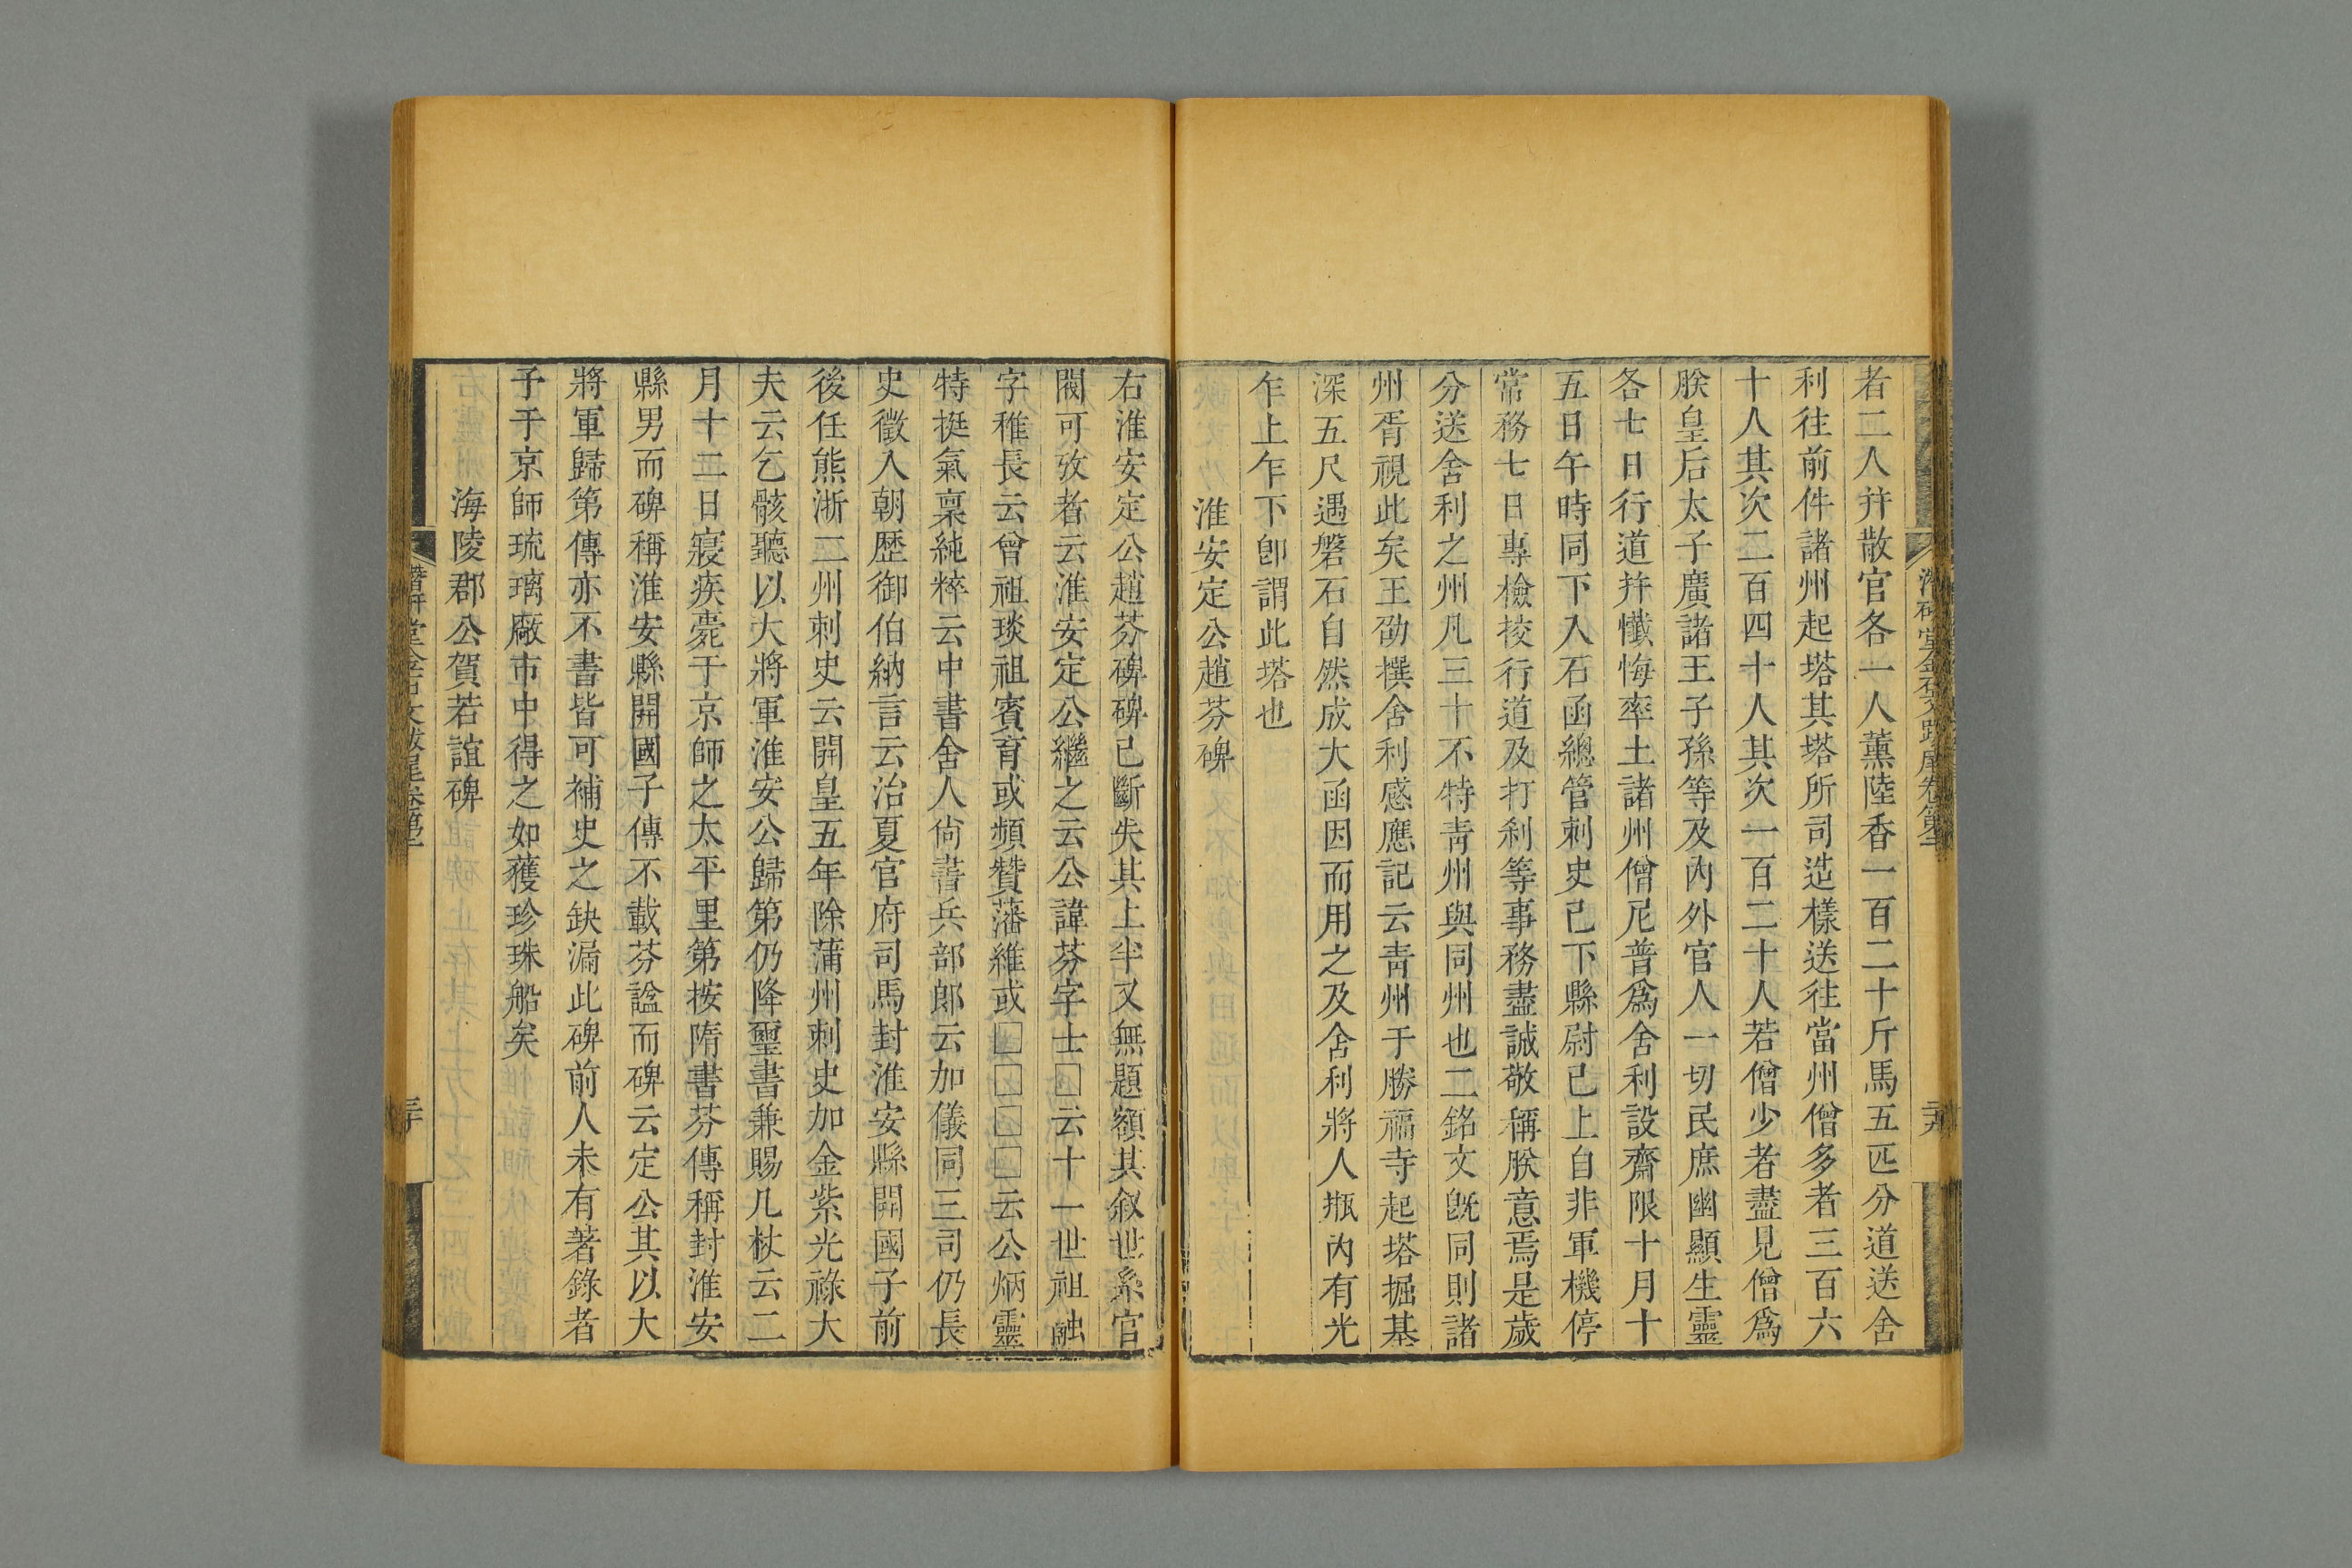 者二人幷散官各一人薰陸香一百二十斤馬五匹分道送舍
利往前件諸州起塔其塔所司造樣送往當州僧多者三百六
十人其次二百四十人其次一百二十人若僧少者盡見僧爲
朕皇后太子廣諸王子孫等及內外官人一切民庶幽顯生靈
各七日行道幷懺悔率土諸州僧尼普爲舍利設齋限十月十
五日午時同下入石函總管刺史已下縣尉已上自非軍機停
常務七日專檢挍行道及打刹等事務盡誠敬稱朕意焉是歲
分送舍利之州凡三十不特靑州與同州也二銘文旣同則諸
州胥視此矣王劭撰舍利感應記云靑州于勝福寺起塔掘基
深五尺遇磐石自然成大函因而用之及舍利將入瓶內有光
乍上乍下卽謂此塔也
淮安定公趙芬碑
右淮安定公趙芬碑碑已斷失其上半又無題額其敘世系官
閥可攷者云淮安定公繼之云公諱芬字士□云十一世祖融
字稚長云曾祖琰祖賓育或頻贊藩維或□□□□云公炳靈
特挺氣稟純粹云中書舍人尙書兵部郞云加儀同三司仍長
史徵入朝歷御伯納言云治夏官府司馬封淮安縣開國子前
後任熊淅二州刺史云開皇五年除蒲州刺史加金紫光祿大
夫云乞骸聽以大將軍淮安公歸第仍降璽書兼賜几杖云二
月十二日寢疾薨于京師之太平里第按隋書芬傳稱封淮安
縣男而碑稱淮安縣開國子傳不載芬諡而碑云定公其以大
將軍歸第傳亦不書皆可補史之缺漏此碑前人未有著錄者
予于京師琉璃廠市中得之如獲珍珠船矣
海陵郡公賀若誼碑